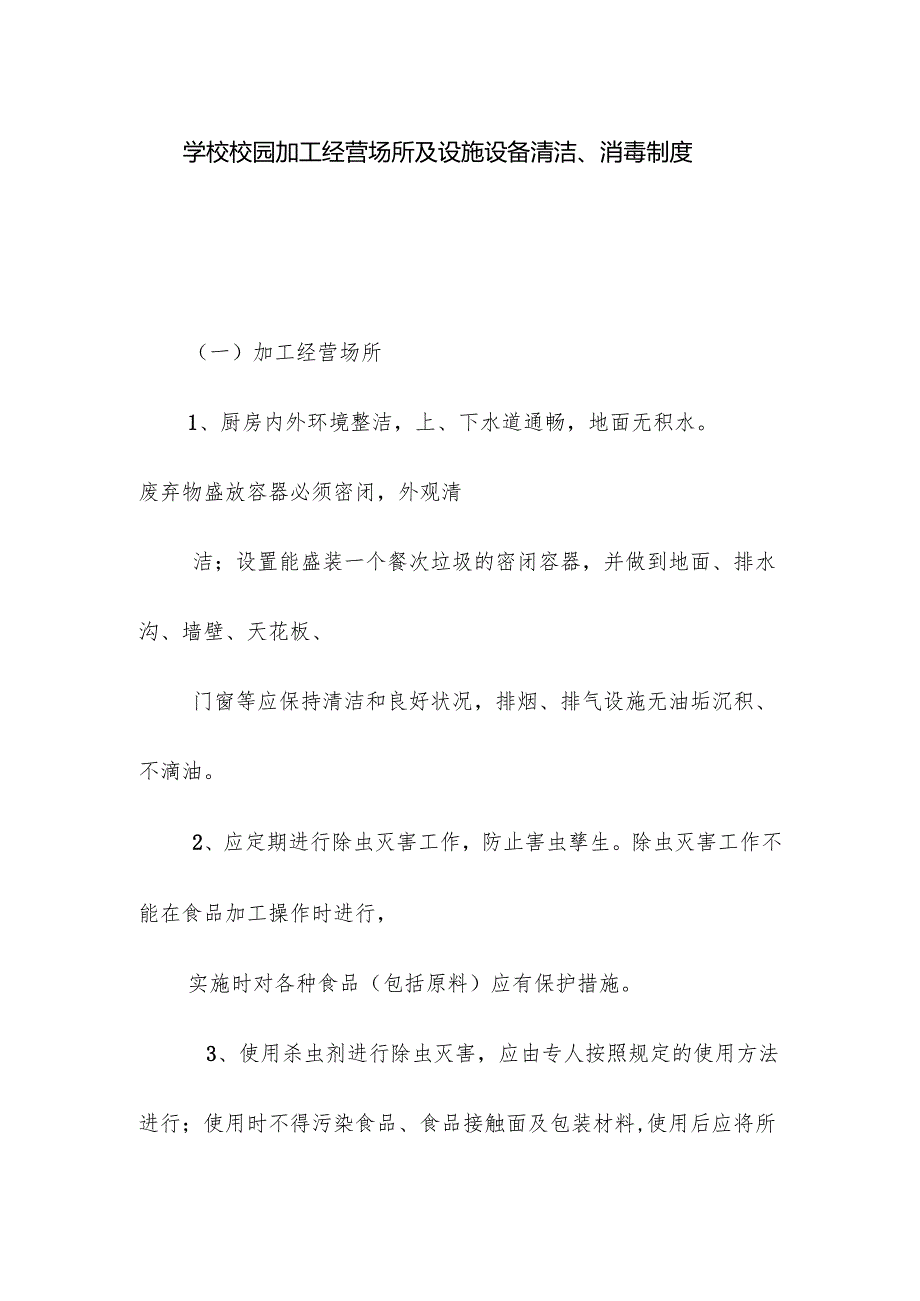 学校校园加工经营场所及设施设备清洁、消毒制度
（一）加工经营场所
1、厨房内外环境整洁，上、下水道通畅，地面无积水。
废弃物盛放容器必须密闭，外观清
洁；设置能盛装一个餐次垃圾的密闭容器，并做到地面、排水
沟、墙壁、天花板、
门窗等应保持清洁和良好状况，排烟、排气设施无油垢沉积、
不滴油。
2、应定期进行除虫灭害工作，防止害虫孳生。除虫灭害工作不
能在食品加工操作时进行，
实施时对各种食品（包括原料）应有保护措施。
3、使用杀虫剂进行除虫灭害，应由专人按照规定的使用方法
进行；使用时不得污染食品、食品接触面及包装材料,使用后应将所